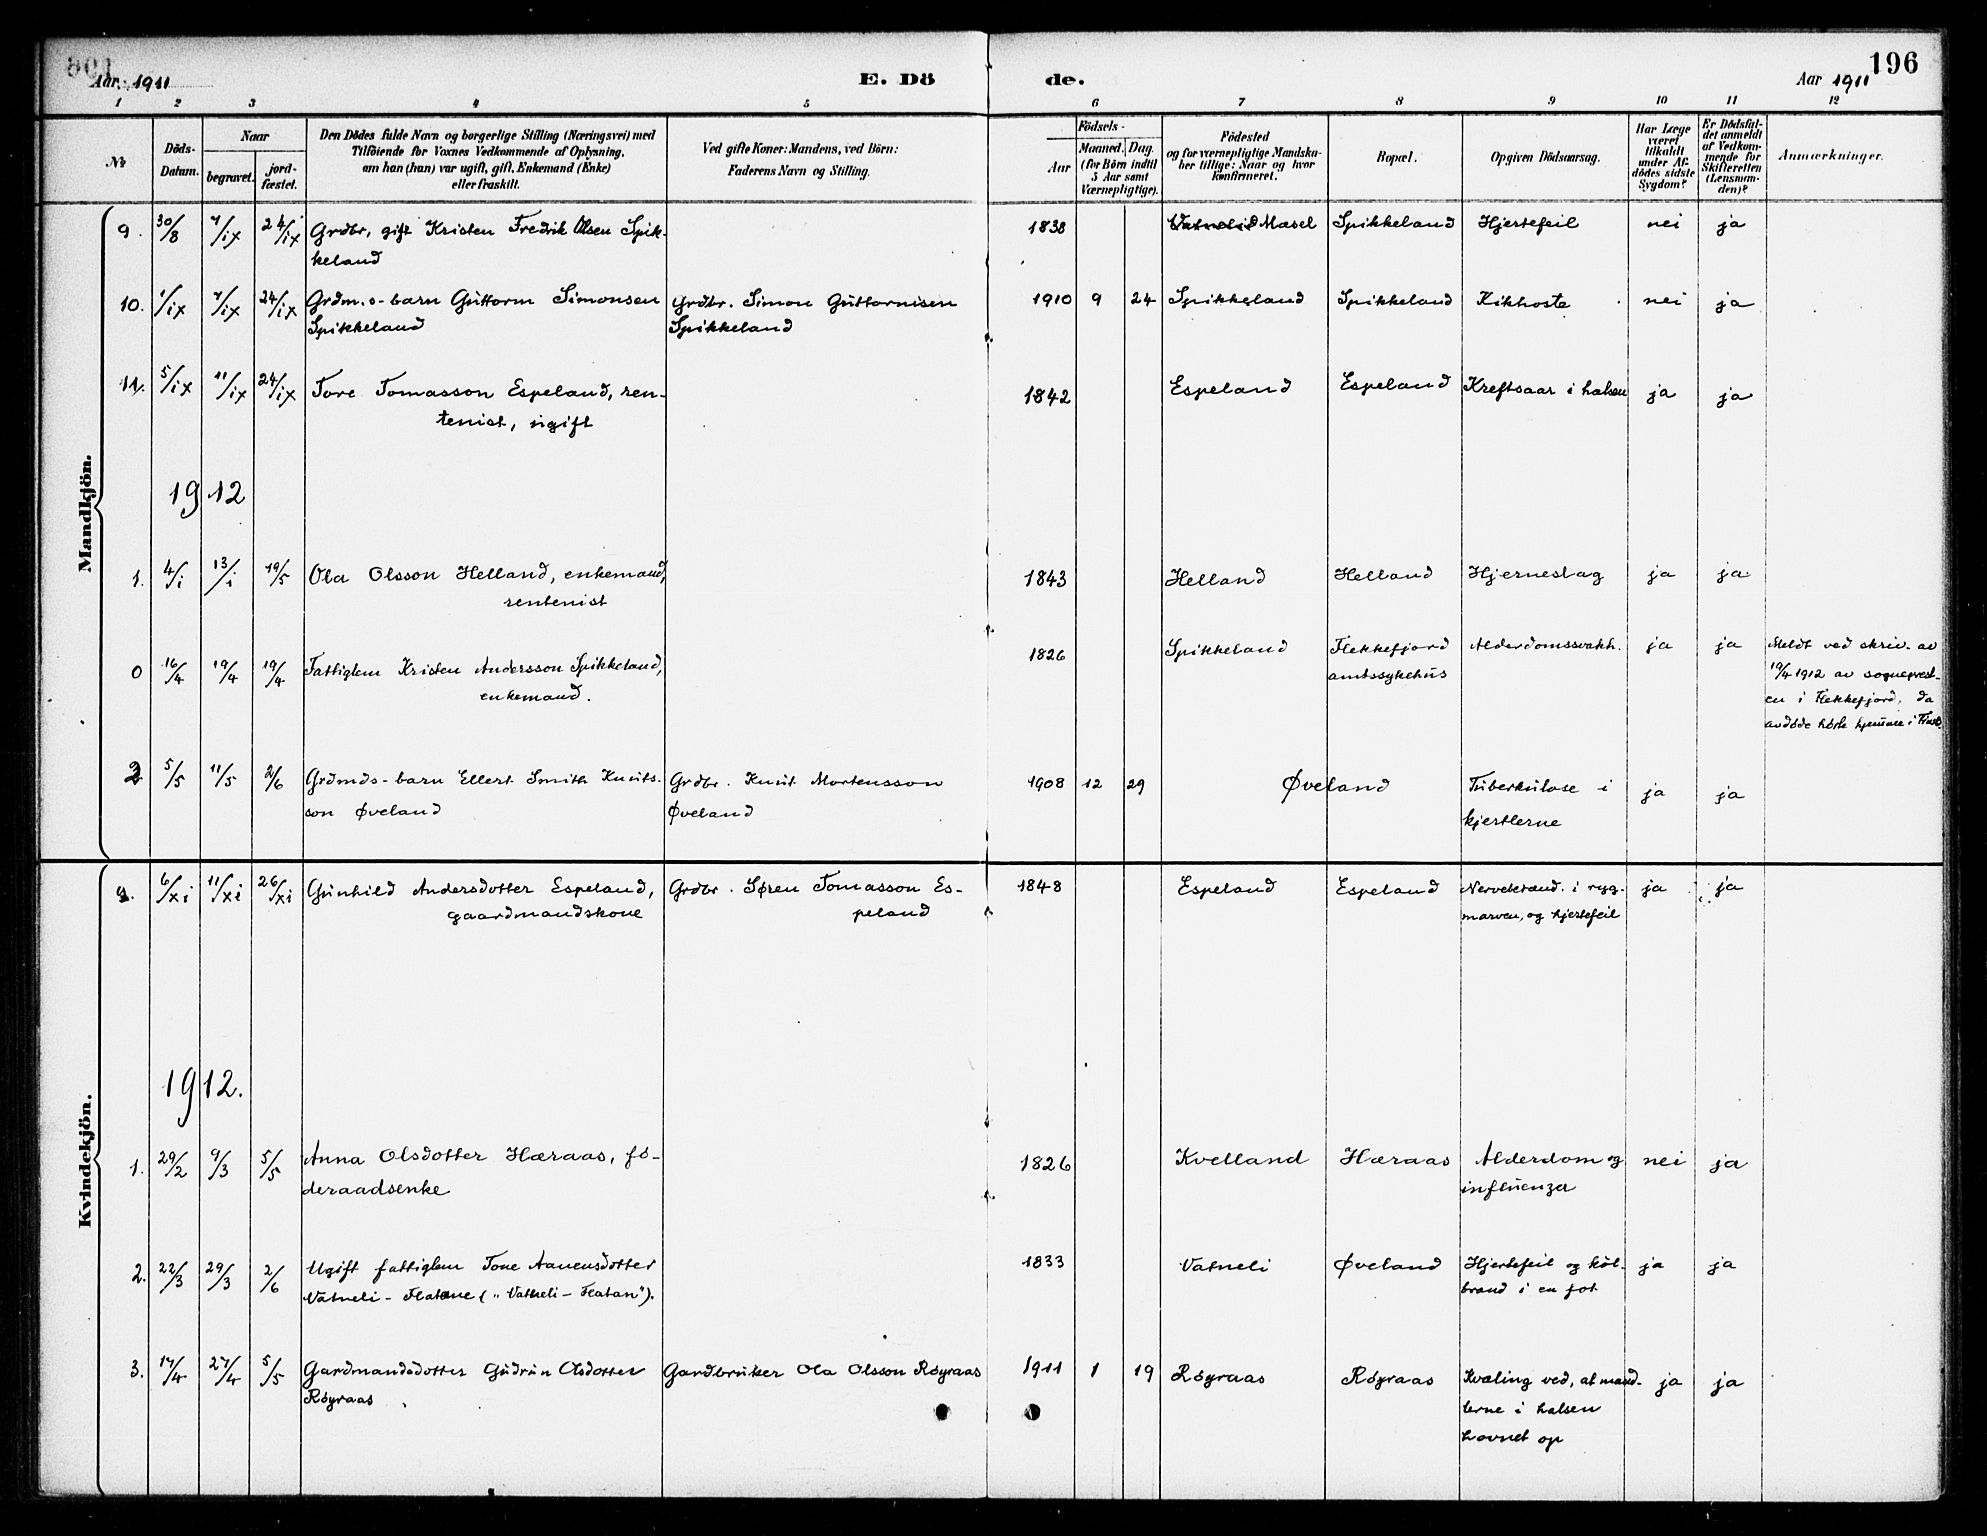 Aar. 1911
E. Dö
de.
Aar 1911
196
1 2 3 4 5 6 7 8 9 10 11 12
No
Döds-
Datum.
Naar
begravet.
jord-
fæstet.
Den Dödes fulde Navn og borgerlige Stilling (Næringsvei) med
Tilföiende for Voxnes Vedkommende af Oplysning,
om han (hun) var ugift, gift, Enkemand (Enke)
eller fraskilt.
Ved gifte Koner: Mandens, ved Börn:
Faderens Navn og Stilling.
Födsels-
Aar
Maaned. Dag.
(for Börn indtil
5 Aar samt
Værnepligtige).
Födested
og for værnepligtige Mandska-
ber tillige: Naar og hvor
konfirmeret.
Bopæl.
Opgiven Dödsaarsag.
Har Læge
været
tilkaldt
under Af-
dödes sidste
Sygdom?
Er Dödsfal-
det anmeldt
af Vedkom-
mende for
Skifteretten
(Lensman-
den)?
Anmærkninger.
Mandkjön.
9. 30/8 7/ix 24/ix Grdbr, gift Kristen Fredrik Olsen Spik- 1838 Mæsel Spikkeland Hjertefeil nei ja
keland
10. 1/ix 7/ix 24/ix Grdm.s-barn Guttorm Simonsen Grdbr. Simon Guttormsen 1910 9 24 Spikkeland Spikkeland Kikhoste nei ja
Spikkeland Spikkeland
11. 5/ix 11/ix 24/ix Tore Tomasson Espeland, ren- 1842 Espeland Espeland Kreftsaar i halsen ja ja
tenist, ugift
1912
1. 4/i 13/i 19/5 Ola Olsson Helland, enkemand, 1843 Helland Helland Hjerneslag ja ja
rentenist
0 16/4 19/4 19/4 Fattiglem Kristen Andersson Spikkeland, 1826 Spikkeland Flekkefjord Alderdomssvakh. ja ja Meldt ved skriv. av
enkemand. amtssykehus 19/4 1912 av sogneprest-
en i Flekkefjord, da
avdøde hørte hjemme i
2 5/5 11/5 2/6 Grdmds-barn Ellert Smith Knuts- Grdbr. Knut Mortensson 1908 12 29 Øveland Tuberkulose i ja ja
son Øveland Øveland kjertlerne
Kvindekjön.
9. 6/xi 11/xi 26/xi Gunhild Andersdotter Espeland, Grdbr. Søren Tomasson Es- 1848 Espeland Espeland i ryg- ja ja
gaardmandskone peland marven, og hjertefeil
1912.
1. 29/2 9/3 5/5 Anna Olsdotter Hæraas, fø- 1826 Kvelland Hæraas Alderdom og nei ja
deraadsenke influenza
2. 22/3 29/3 2/6 Ugift fattiglem Tone Aanensdotter 1833 Vatneli Øveland Hjertefeil og kol- ja ja
Vatneli - Flatene („Vatneli - Flatan"). brand i en fot
3. 17/4 27/4 5/5 Gardmandsdotter Gudrun Olsdotter Gardbruker Ola Olsson Røyraas 1911 1 19 Røyraas Røyraas Kvæling ved, at mand- ja ja
Røyraas lerne i halsen
hovnet op